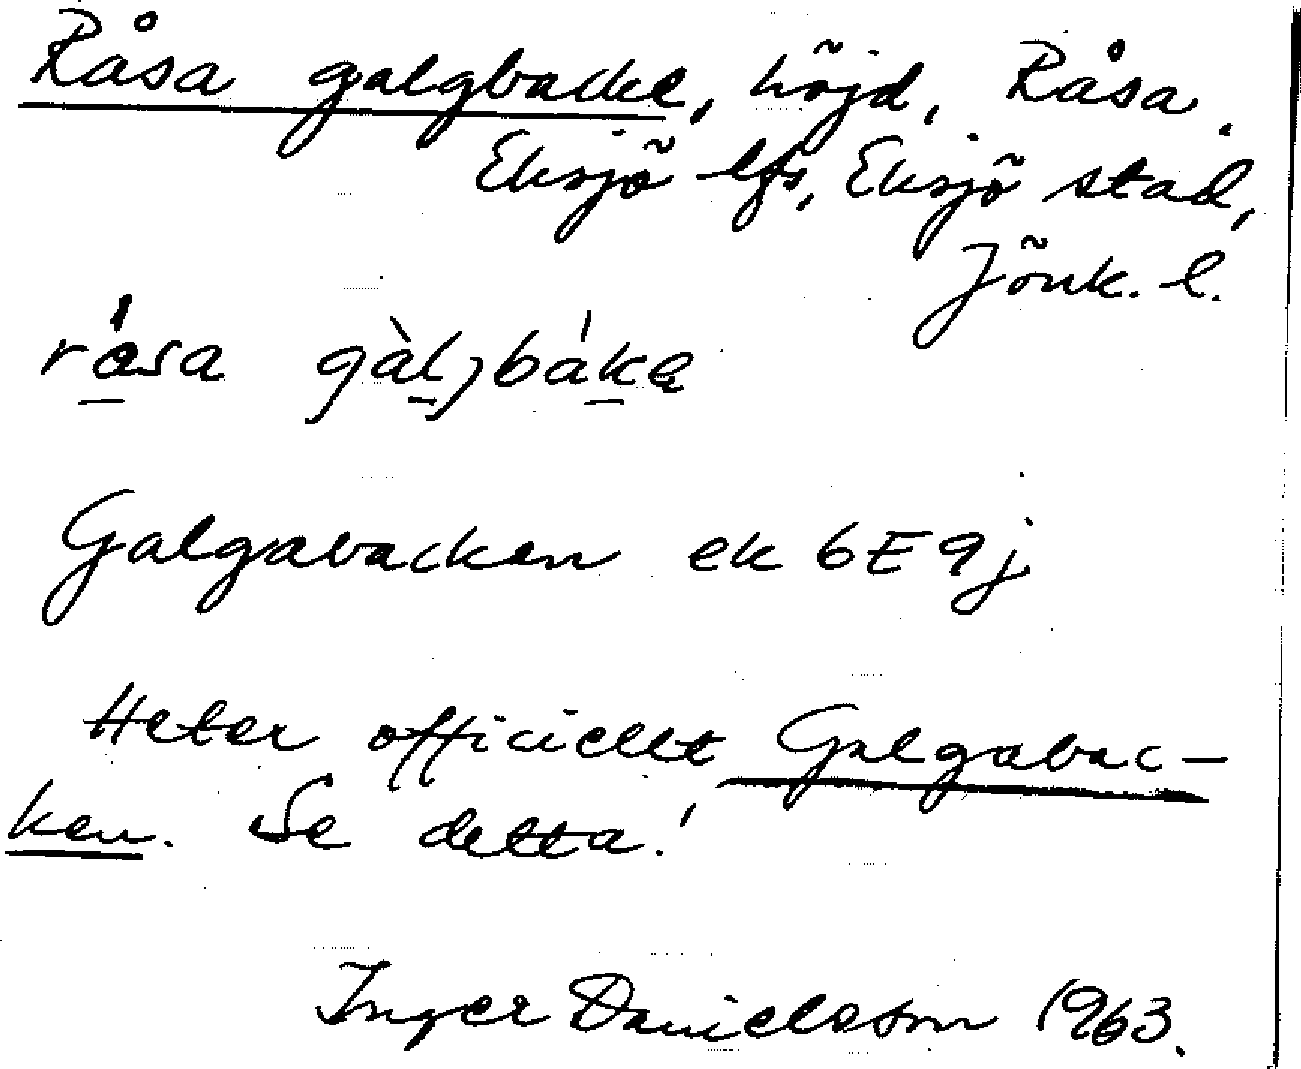 Råsa galgbacke, höjd, Råsa,
Eksjö lfs, Eksjö stad,
Jönk. l.
råsa gàljbáka
Galgabacken ek 6E9j
Heter officiellt Galgabac-
ken. Se detta!
Inger Danielsson 1963.